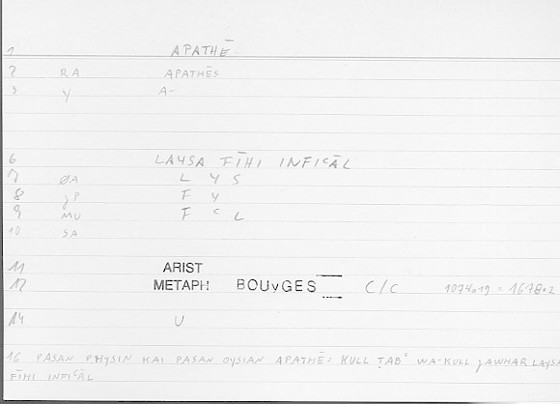 1 APATHĒ
2 RA APATHĒS
3 Y A-
6 LAYSA FĪHI INFIʿĀL
7 ØA L Y S
8 JP F Y
9 MU F ʿ L
10 SA
11 ARIST
12 METAPH BOUYGES C/C 1074a19 = 1678.2
14 U
16 PASAN PHYSIN KAI PASAN OYSIAN APATHĒ: KULL ṬABʿ WA-KULL JAWHAR LAYSA
FĪHI INFIʿĀL